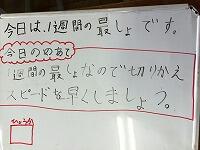 今日は、1週間の最しょです。
今日のめあて
1週間の最しょなので切りかえ
スピードを早くしましょう。
ひょうか